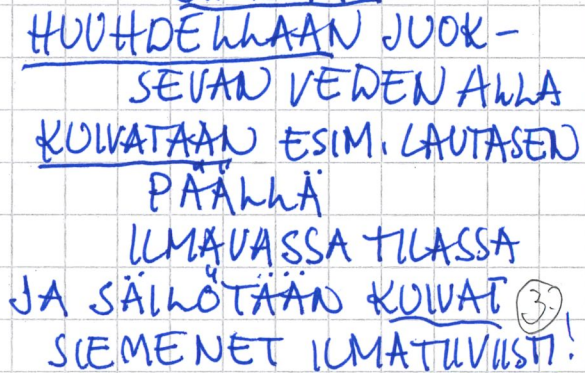 HUUHDELLAAN JUOK-
SEVAN VEDEN ALLA
KUIVATAAN ESIM. LAUTASEN
PÄÄLLÄ
ILMAVASSA TILASSA
JA SÄILÖTÄÄN KUIVAT 3.
SIEMENET ILMATIIVIISTI!